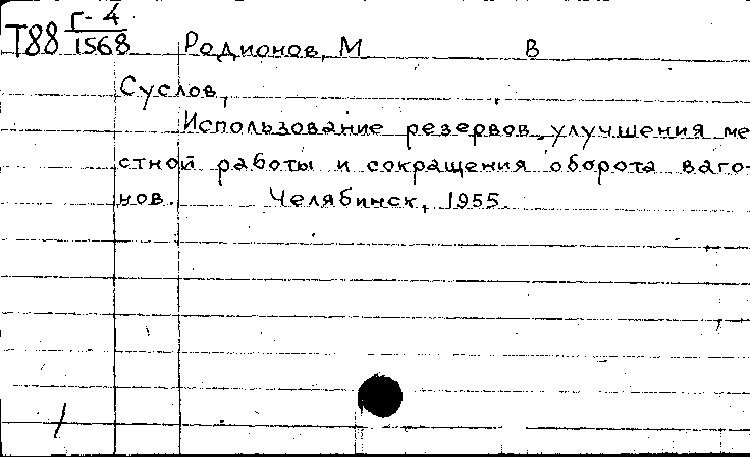 Т88 Г-4
1568
Родионов, М В
Суслов,
Использование резервов улучшения ме
стной работы и сокращения оборота ваго-
нов. Челябинск, 1955.